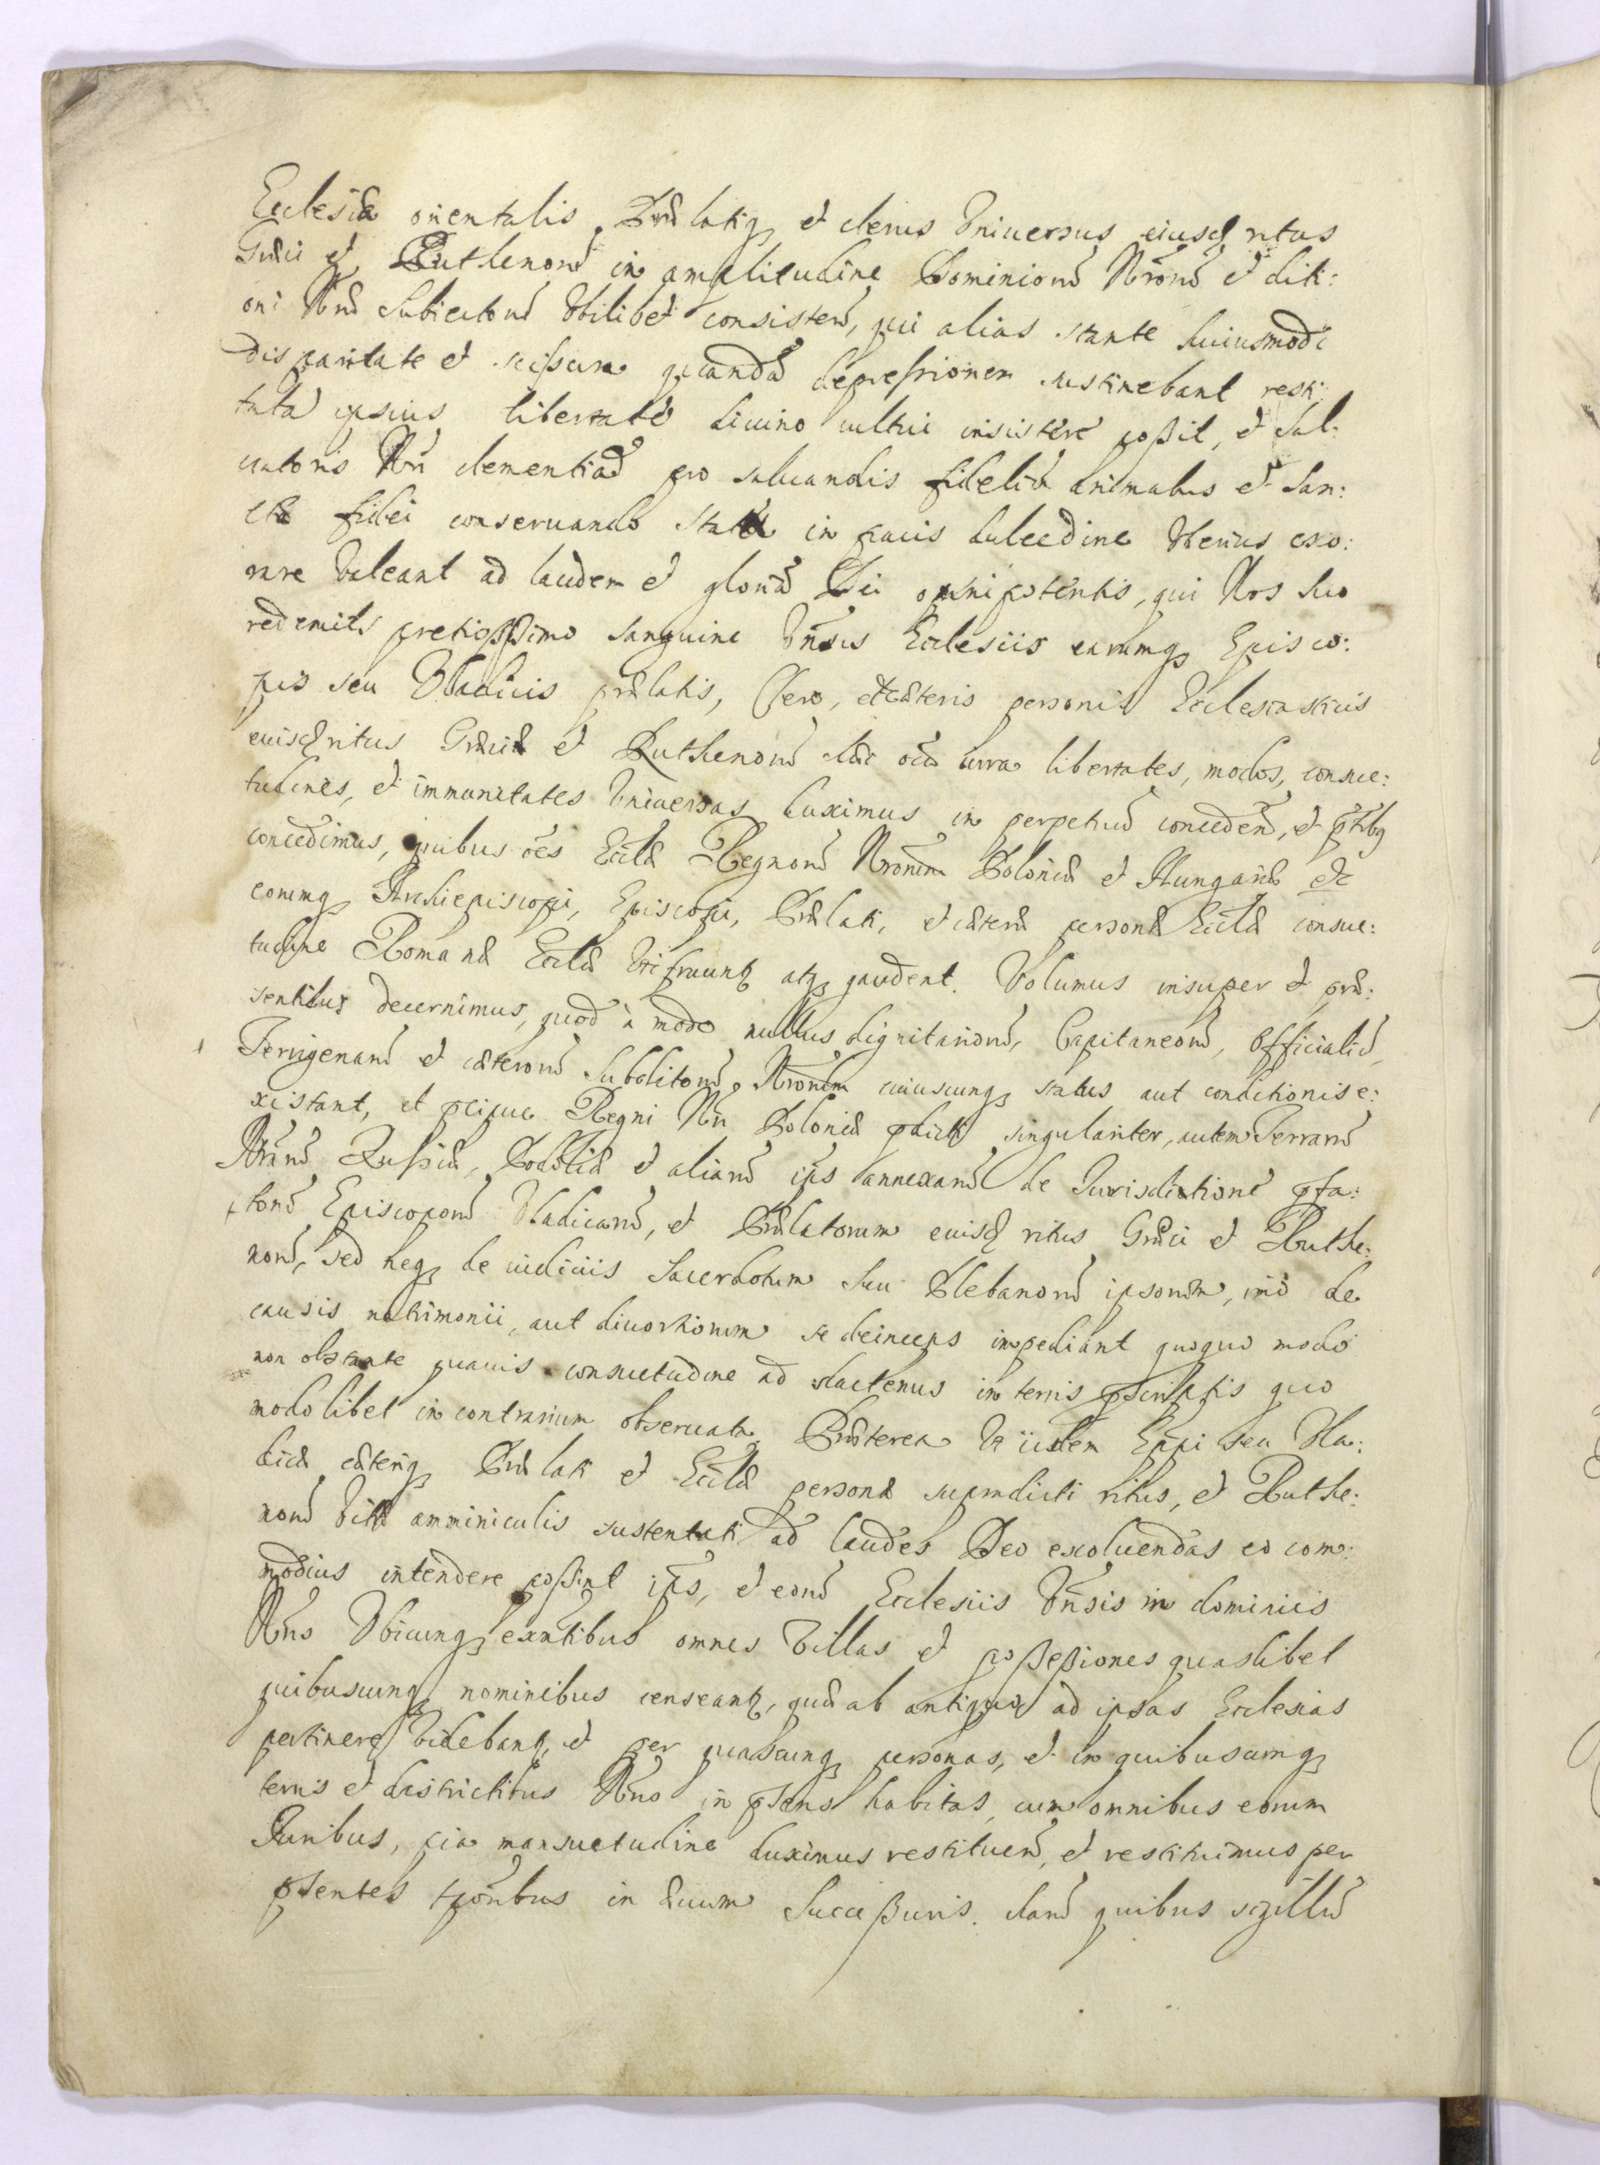 Ecclesiæ orientalis, Prælatiq₃ et clerus Vniversus eiusd ritus
Græci et Ruthenorũ in amplitudine Dominiorũ Nrorũ et diti:
oni Nræ Subiectorũ Vbilibet consisteñ, qui alias stante huiusmodi
disparitate et scissura quandã depressionem sustinebant resti:
tuta ipsius libertate divino cultui insistere possit, et Sal:
uatoris Nri clementiã pro saluandis fidelíũ animabus et San:
ctæ fidei conseruando statu in pacis dulcedine Vberius exo:
rare Valeant ad laudem et gloriã Dei omnipotentis, qui Nos suo
redemit pretiosissimo sanguine Vñsis Ecclesiis earumq₃ Episco:
pis seu Vladicis prælatis, Clero, et cæteris personis Ecclesiasticis
eiusd ritus Græciæ et Ruthenorũ hæc oia iura libertates, modos, consue:
tudines, et immunitates Vniversas duximus in perpetuũ concedeñ, et pñtbq
concedimus, quibus oẽs Ecclæ Regnorũ Nrorum Poloniæ et Hungariæ etc
eorumq₃ Archiepiscopi, Episcopi, Prælati, et cæteræ personæ Ecclæ consue:
tudine Romanæ Ecclæ Vtifruunt atq₃ gaudent. Volumus insuper et præ:
sentibus decernimus, quod à modo nullus dignitariorũ, Capitaneorũ, Officialiũ,
Terrigenarũ et cæterorũ Subditorũ Nrorum cuiuscunq₃ status aut conditionis e:
xistant, et pcipue Regni Nri Poloniæ pdicti singulariter, autem Terrarũ
Nrarũ Russiæ, Podoliæ et aliarũ ips annexarũ de Jurisdictione pfa:
torũ Episcoporũ Vladicarũ, et Prælatorum euisd ritus Græci et Ruthe:
norũ, sed neq₃ de iudiciis Sacerdotum seu Plebanorũ ipsorum, imo de
causis matrimonii, aut divortiorum se deinceps impediant quoquo modo
non obstante quavis consuetudine ad hactenus in terris pscriptis quo
modolibet in contrarium obseruata. Præterea Vt iidem Eppi seu Vla:
dicæ cæteriq₃ Prælati et Ecclæ personæ supradicti ritus, et Ruthe:
norũ Vitæ amminiculis sustentati ad laudes Deo exoluendas eo com:
modius intendere possint ips, et eorũ Ecclesiis Vñsis in dominiis
Nris Vbicunq₃ exñtibus omnes Villas et possessiones quaslibet
quibuscunq₃ nominibus censeant, quæ ab antiquo ad ipsas Ecclesias
pertinere Videbant, et per quascunq₃ personas, et in quibuscumq₃
terris et districtibus Nris in psens habitas, cum omnibus eorum
Juribus, pia mansuetudine duximus restitueñ, et restituimus per
psentes tporibus in æuum Successuris. harũ quibus sigillũ